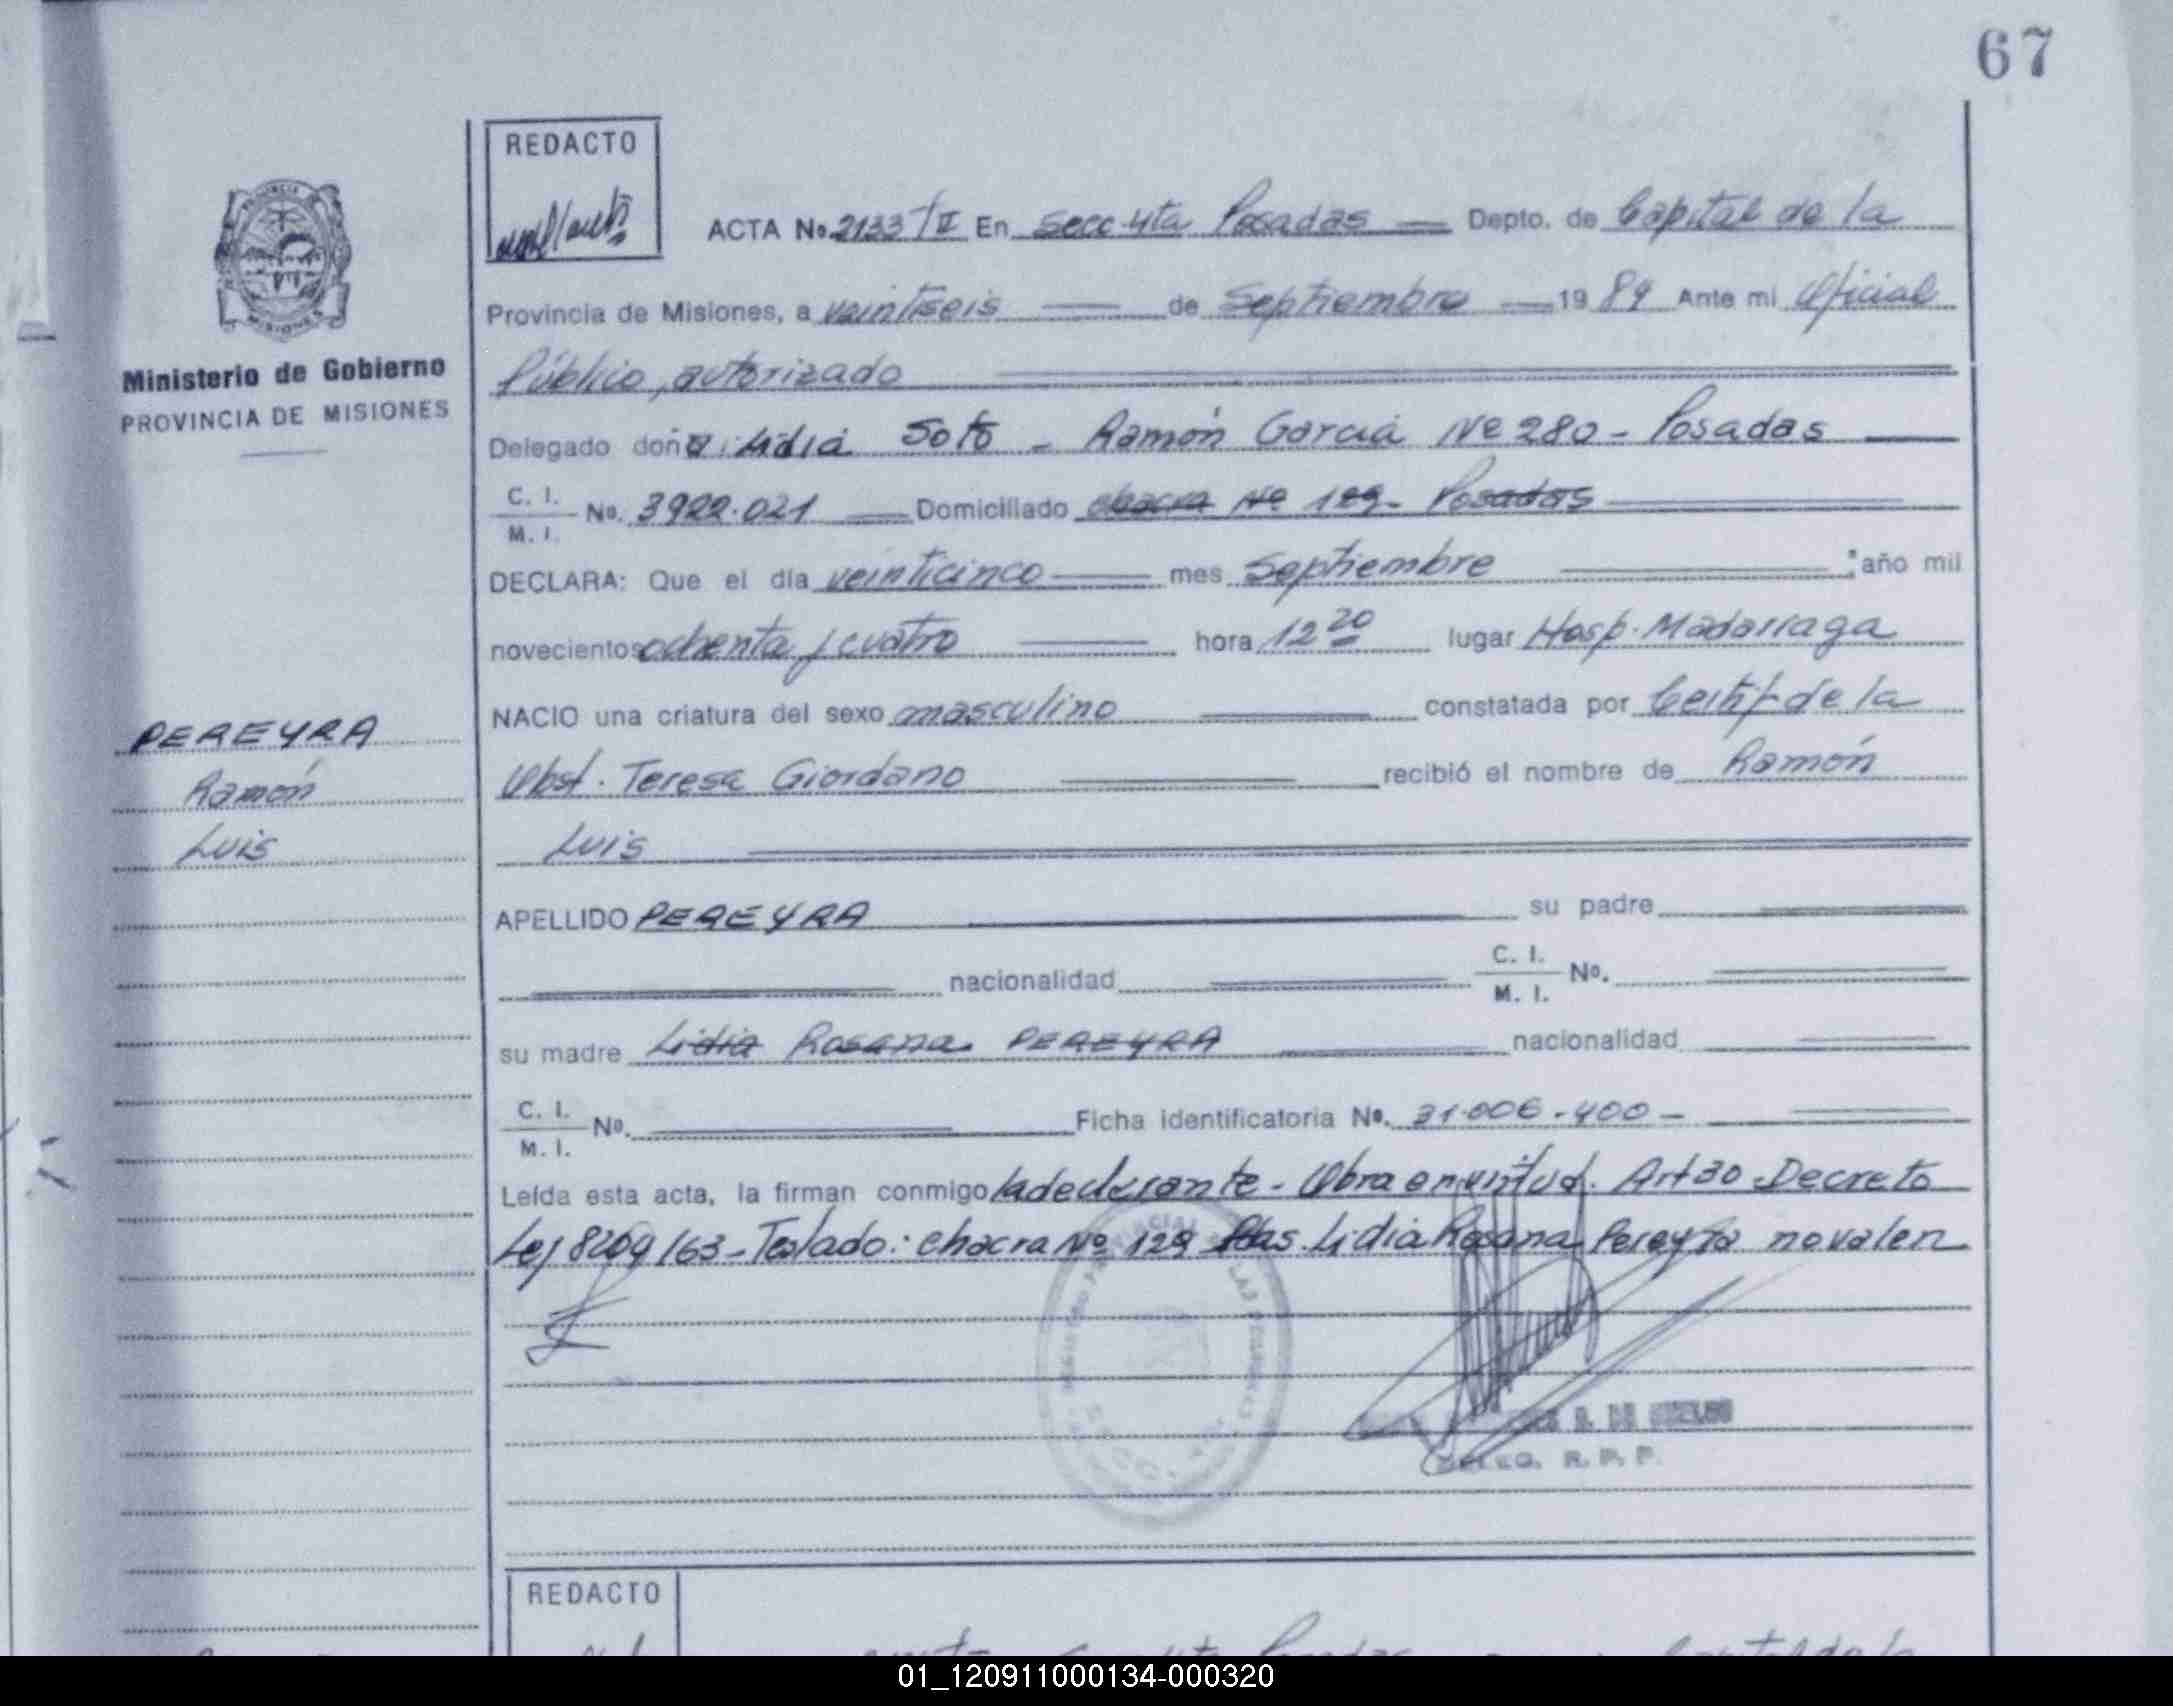 67
REDACTO
ACTA No. 2133 / II En Secc 4ta Posadas Depto. de Capital de la
Provincia de Misiones, a veintiseis de Septiembre 1984 Ante mi Oficial
Público, autorizado
Ministerio de Gobierno
PROVINCIA DE MISIONES
Delegado doña: Lidia Soto - Ramón García Nº 280 - Posadas
C. I.
M. I.
No. 3922.021 Domiciliado chacra Nº 129- Posadas
DECLARA: Que el día veinticinco mes Septiembre año mil
novecientos ochenta y cuatro hora 12 20 lugar Hosp. Madariaga
NACIO una criatura del sexo masculino constatada por Certif de la
PEREYRA
Ramón
Luis
Obst. Teresa Giordano recibió el nombre de Ramón
Luis
APELLIDO PEREYRA su padre
nacionalidad C. I.
M. I. Nº.
su madre Lidia Rosana PEREYRA nacionalidad
C. I.
M. I.
Nº. Ficha identificatoria Nº. 31.006.400 -
Leída esta acta, la firman conmigo la declarante - Obra en virtud. Art 30 Decreto
Ley 8209/63 - Testado: chacra Nº 129 Pdas. Lidia Rosana Pereyra no valen
R. P. P.
REDACTO
01_120911000134-000320